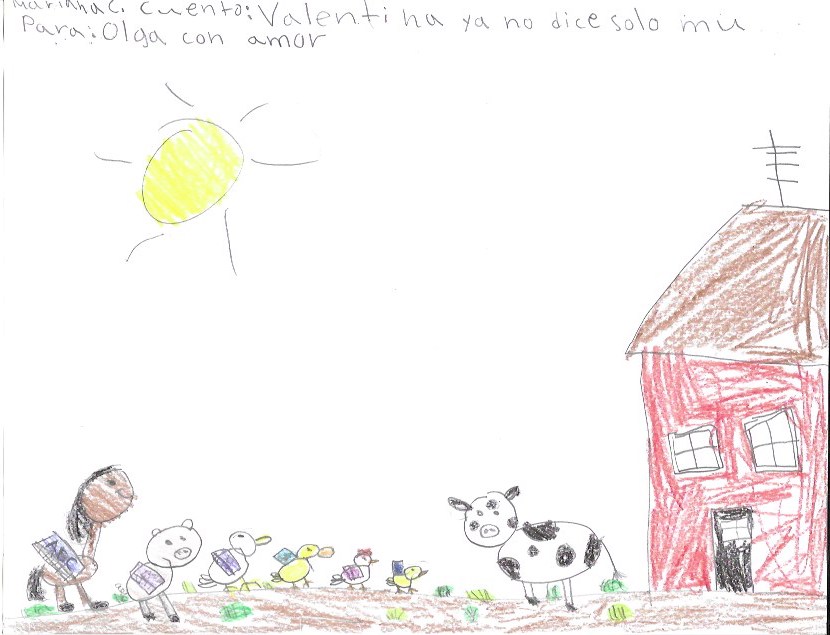 Mariana C. Cuento: Valentina ya no dice solo mu
Para: Olga con amor
ABC